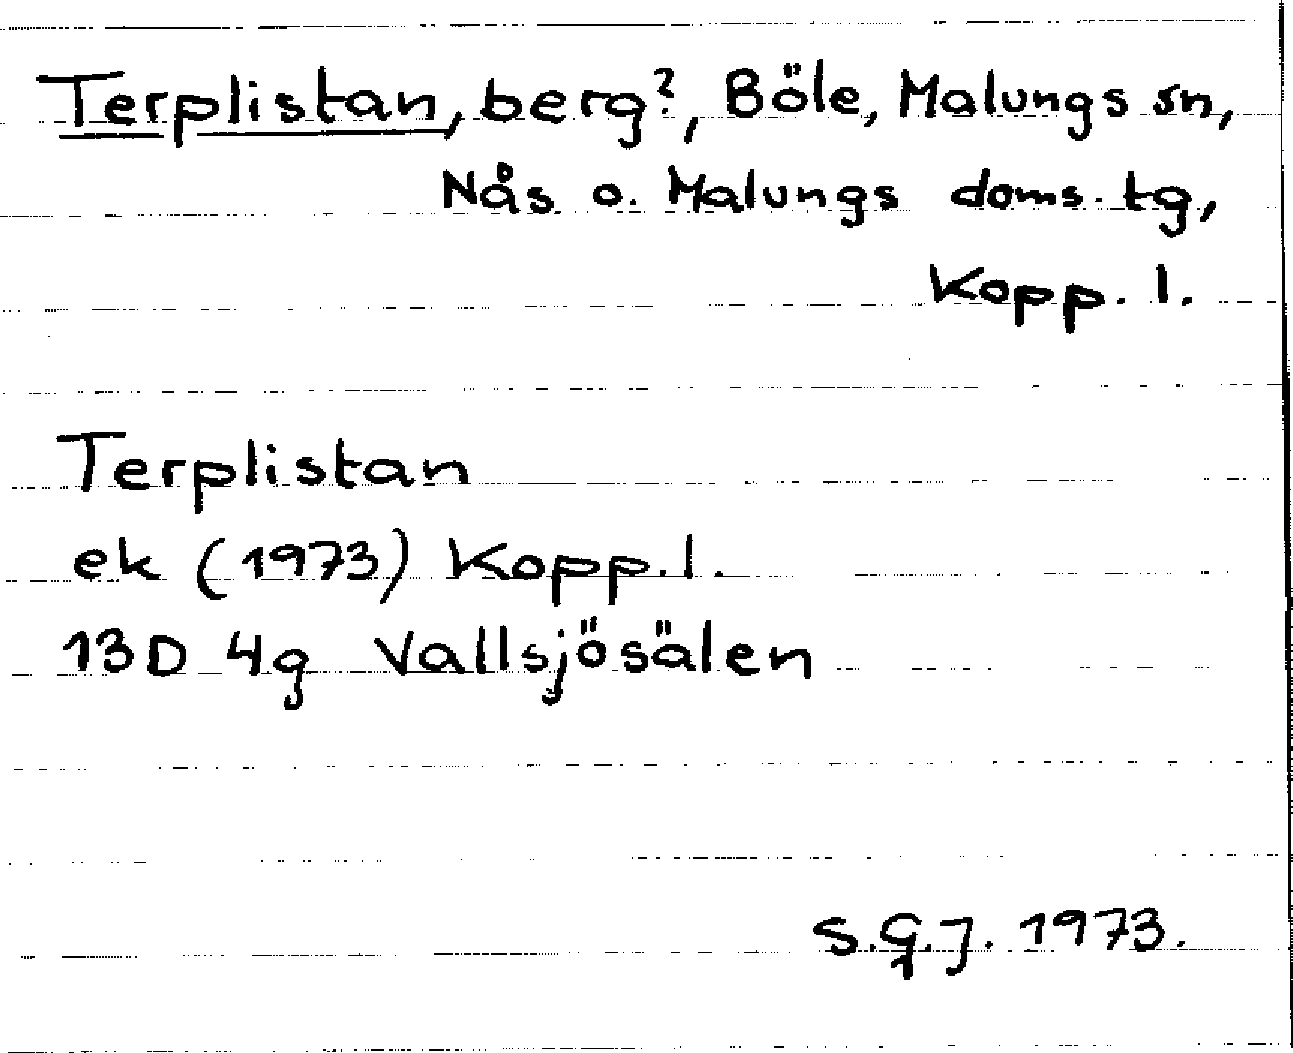 Terplistan, berg?, Böle, Malungs sn,
Nås o. Malungs doms. tg,
Kopp. l.
Terplistan
ek (1973) Kopp. l.
13D 4g Vallsjösälen
S.G.J. 1973.